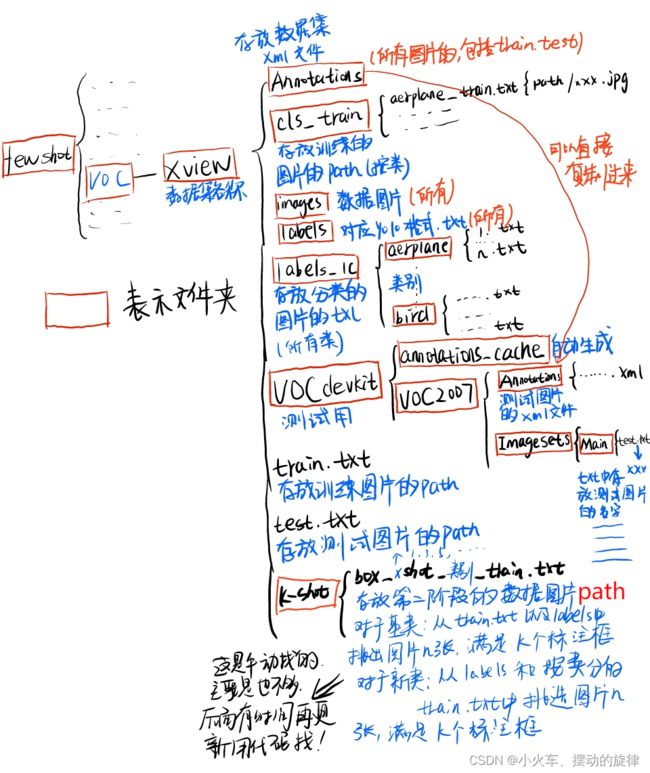 存放数据集
xml 文件
(所有图片的,包括train.test)
Annotations
aerplane_train.txt { path/xxx.jpg
cls_train
存放训练的
图片的path (按类)
可以直接
复制过来
fewshot
VOC
xview
数据集名称
images 数据图片 (所有)
labels 对应yolo格式.txt (所有)
labels_1c
存放分类的
图片的txt
(所有类)
aerplane
1. txt
n. txt
类别
bird
txt
txt
表示文件夹
VOCdevkit
测试用
annotations_cache 自动生成
VOC2007
Annotations { ....... xml
测试图片
的xml文件
Imagesets { Main { test.txt
xxx
txt中存
放测试图片
的名字
train.txt
存放训练图片的path
test.txt
存放测试图片的path
1,2,3,5, ......
k-shot
box_xshot_类别_train.txt
存放第二阶段的数据图片path
对于基类:从train.txt以及labels中
挑出图片n张,满足K个标注框
对于新类:从labels和按类分的
train.txt中挑选图片n
张,满足K个标注框
这是手动找的.
主要是也不多
后面有时间再更
新用代码找!
CSDN @小火车、摆动的旋律